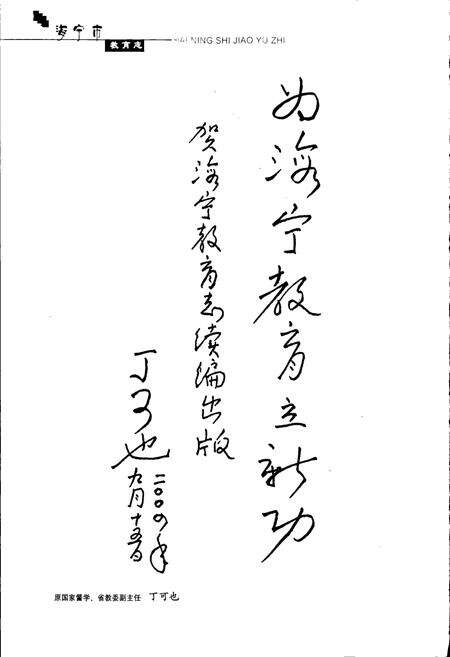 海宁市
教育志
HAI NING SHI JIAO YU ZHI
为海宁教育立新功
贺海宁教育志续编出版
丁可也
二〇〇四年
九月十五日
原国家督学、省教委副主任 丁可也